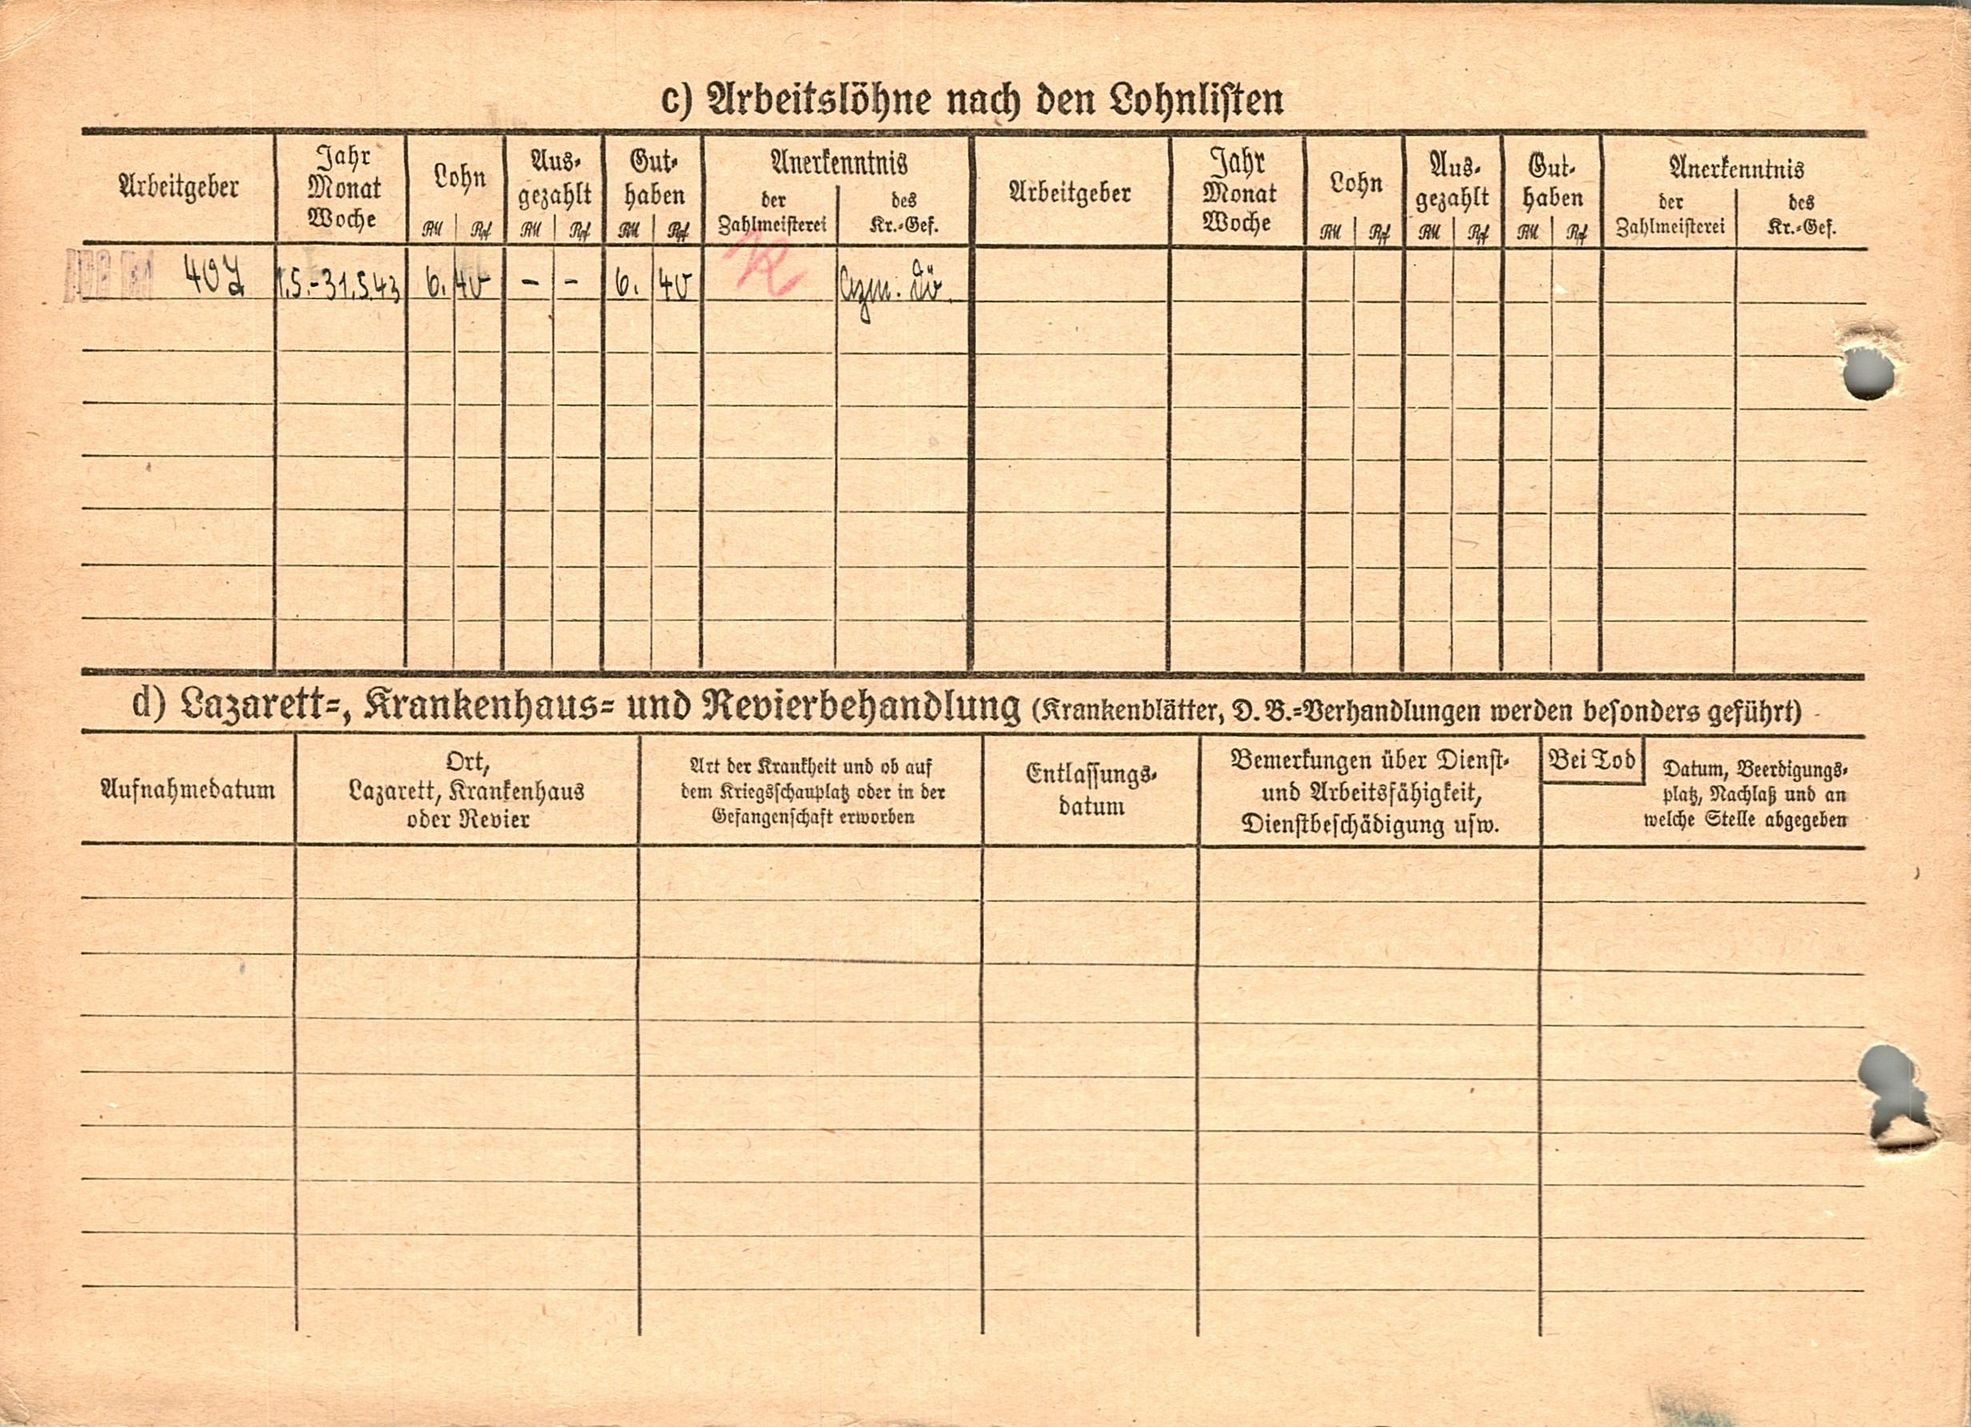 c) Arbeitslöhne nach den Lohnlisten
Arbeitgeber
Jahr
Monat
Woche
Lohn
RM Rpf
Aus-
gezahlt
RM Rpf
Gut-
haben
RM Rpf
Anerkenntnis
der
Zahlmeisterei
des
Kr.-Gef.
Arbeitgeber
Jahr
Monat
Woche
Lohn
RM Rpf
Aus-
gezahlt
RM Rpf
Gut-
haben
RM Rpf
Anerkenntnis
der
Zahlmeisterei
des
Kr.-Gef.
1.5.-31.5.43 6. 40 - - 6. 40
d) Lazarett-, Krankenhaus- und Revierbehandlung (Krankenblätter, D. B.-Verhandlungen werden besonders geführt)
Aufnahmedatum
Ort,
Lazarett, Krankenhaus
oder Revier
Art der Krankheit und ob auf
dem Kriegsschauplatz oder in der
Gefangenschaft erworben
Entlassungs-
datum
Bemerkungen über Dienst-
und Arbeitsfähigkeit,
Dienstbeschädigung usw.
Bei Tod
Datum, Beerdigungs-
platz, Nachlaß und an
welche Stelle abgegeben